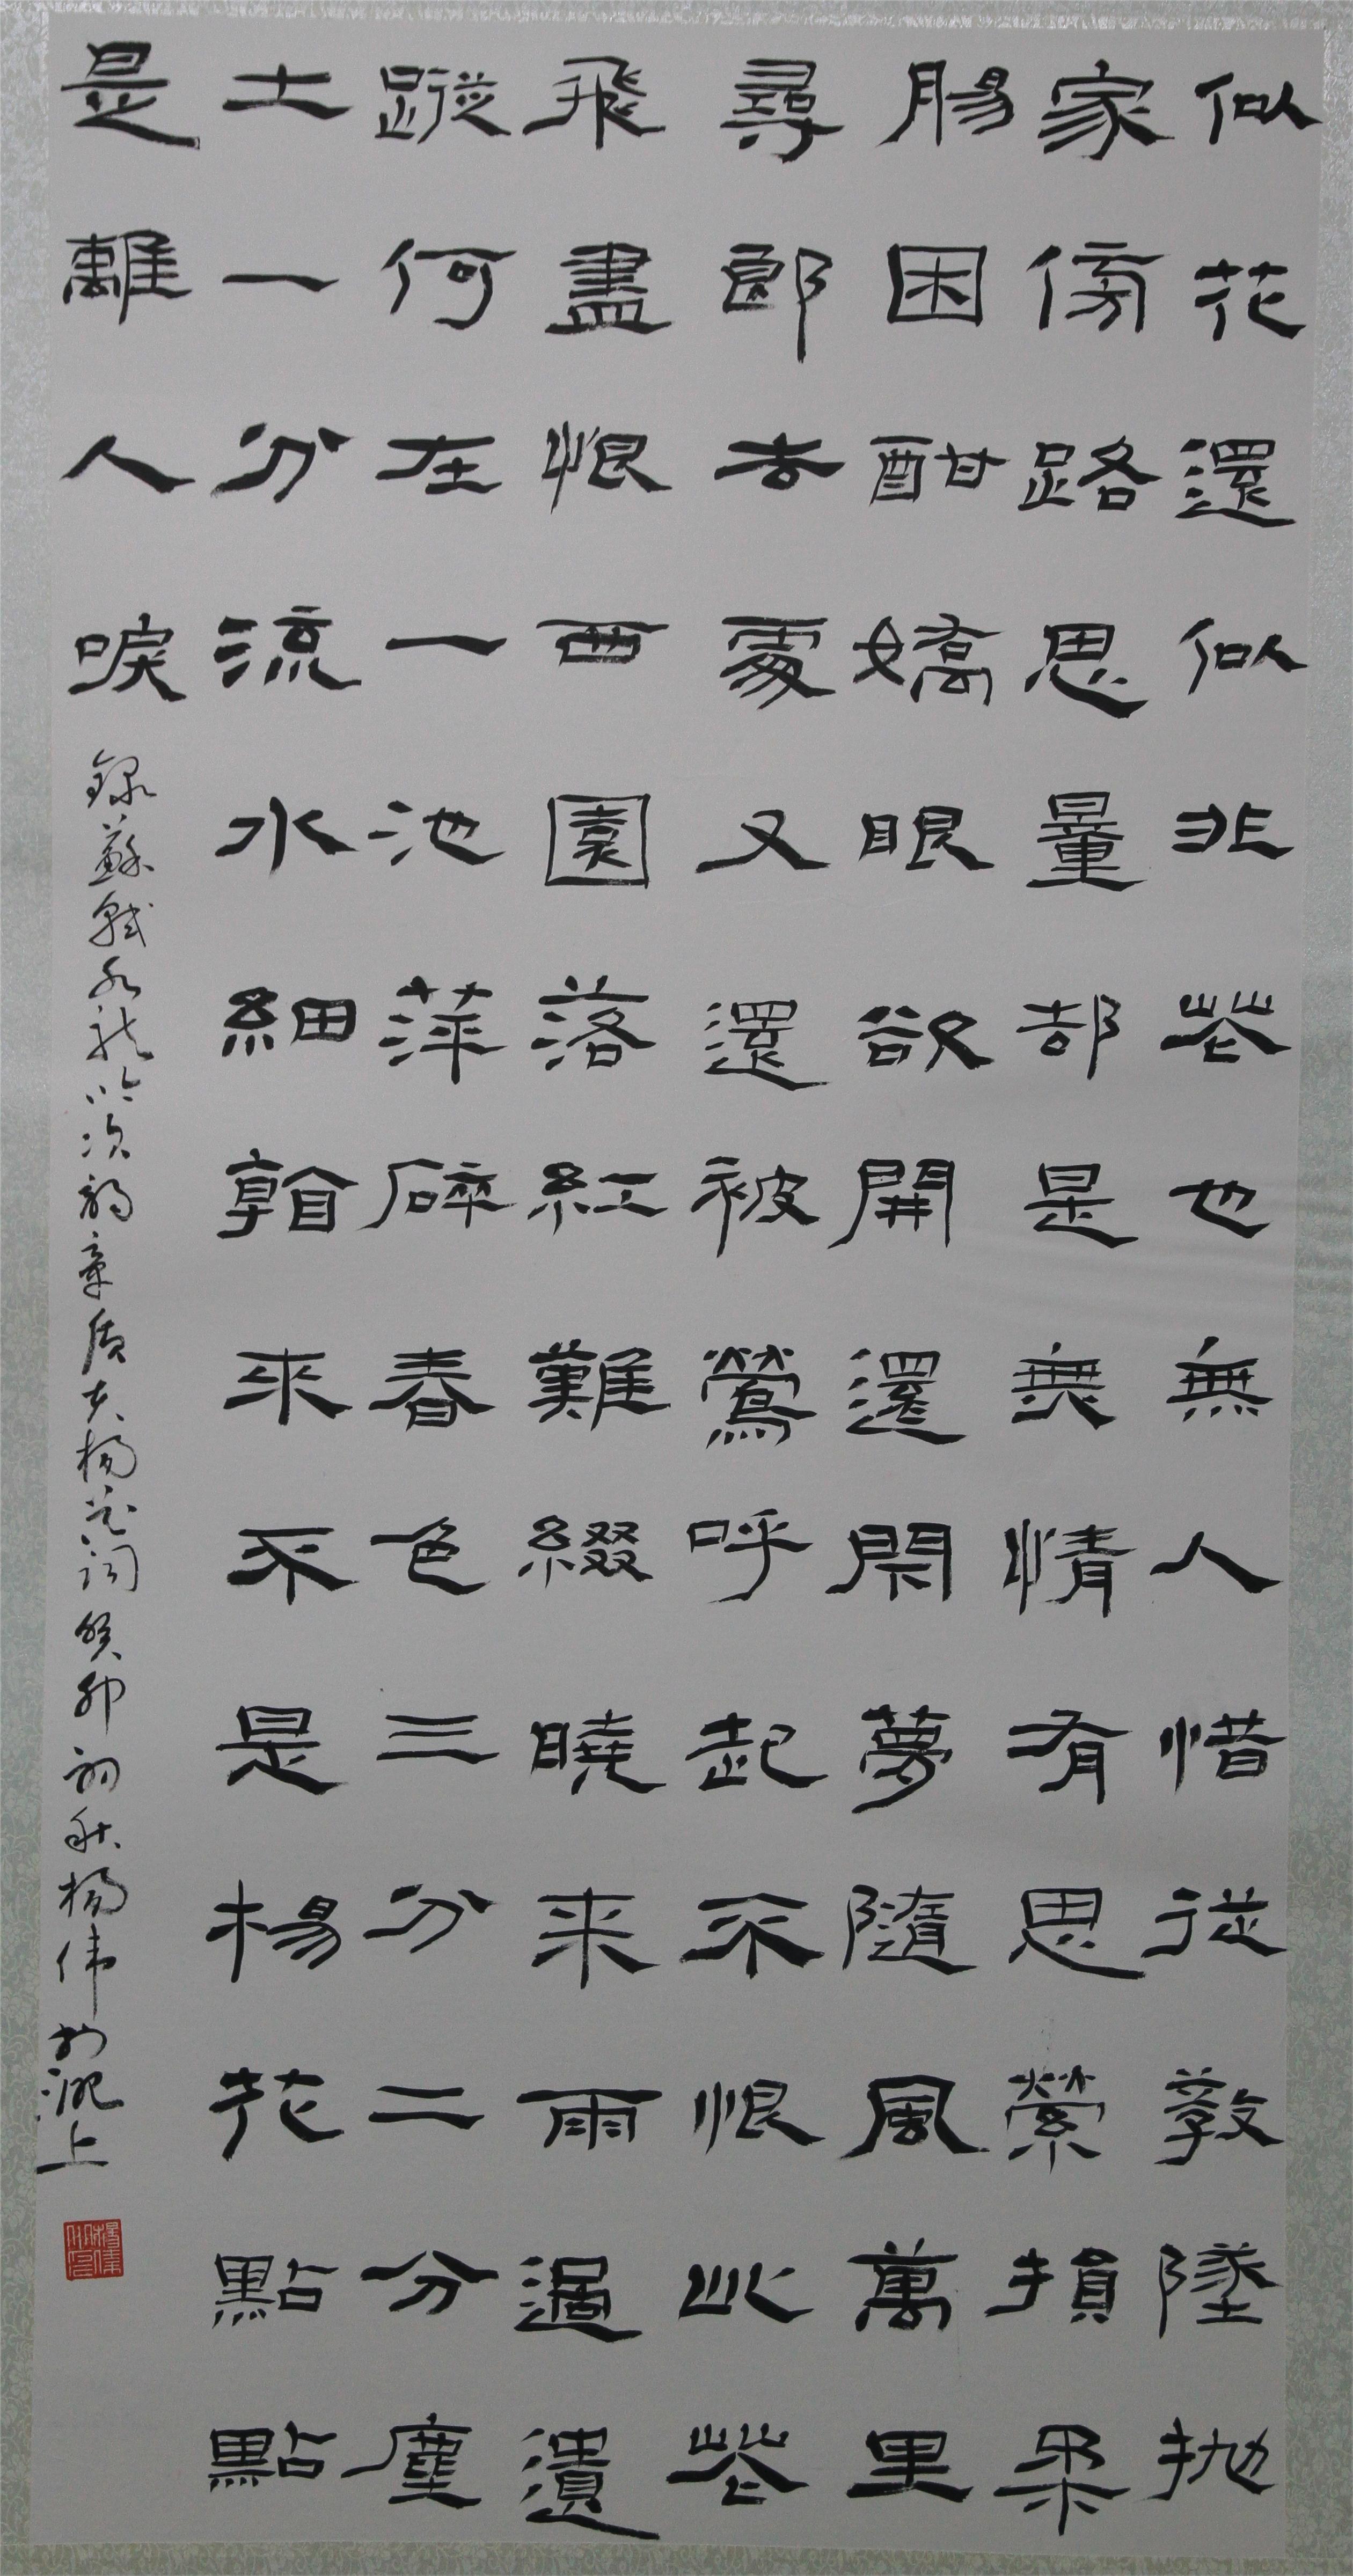 似花還似非花也無人惜從教墜拋
家傍路思量却是無情有思縈損柔
腸困酣嬌眼欲開還閉夢隨風萬里
尋郎去處又還被鶯呼起不恨此花
飛盡恨西園落紅難綴曉來雨過遺
蹤何在一池萍碎春色三分二分塵
土一分流水細看來不是楊花點點
是離人唳
錄蘇軾水龍吟次韵章質夫楊花詞癸卯初秋楊偉於淝上